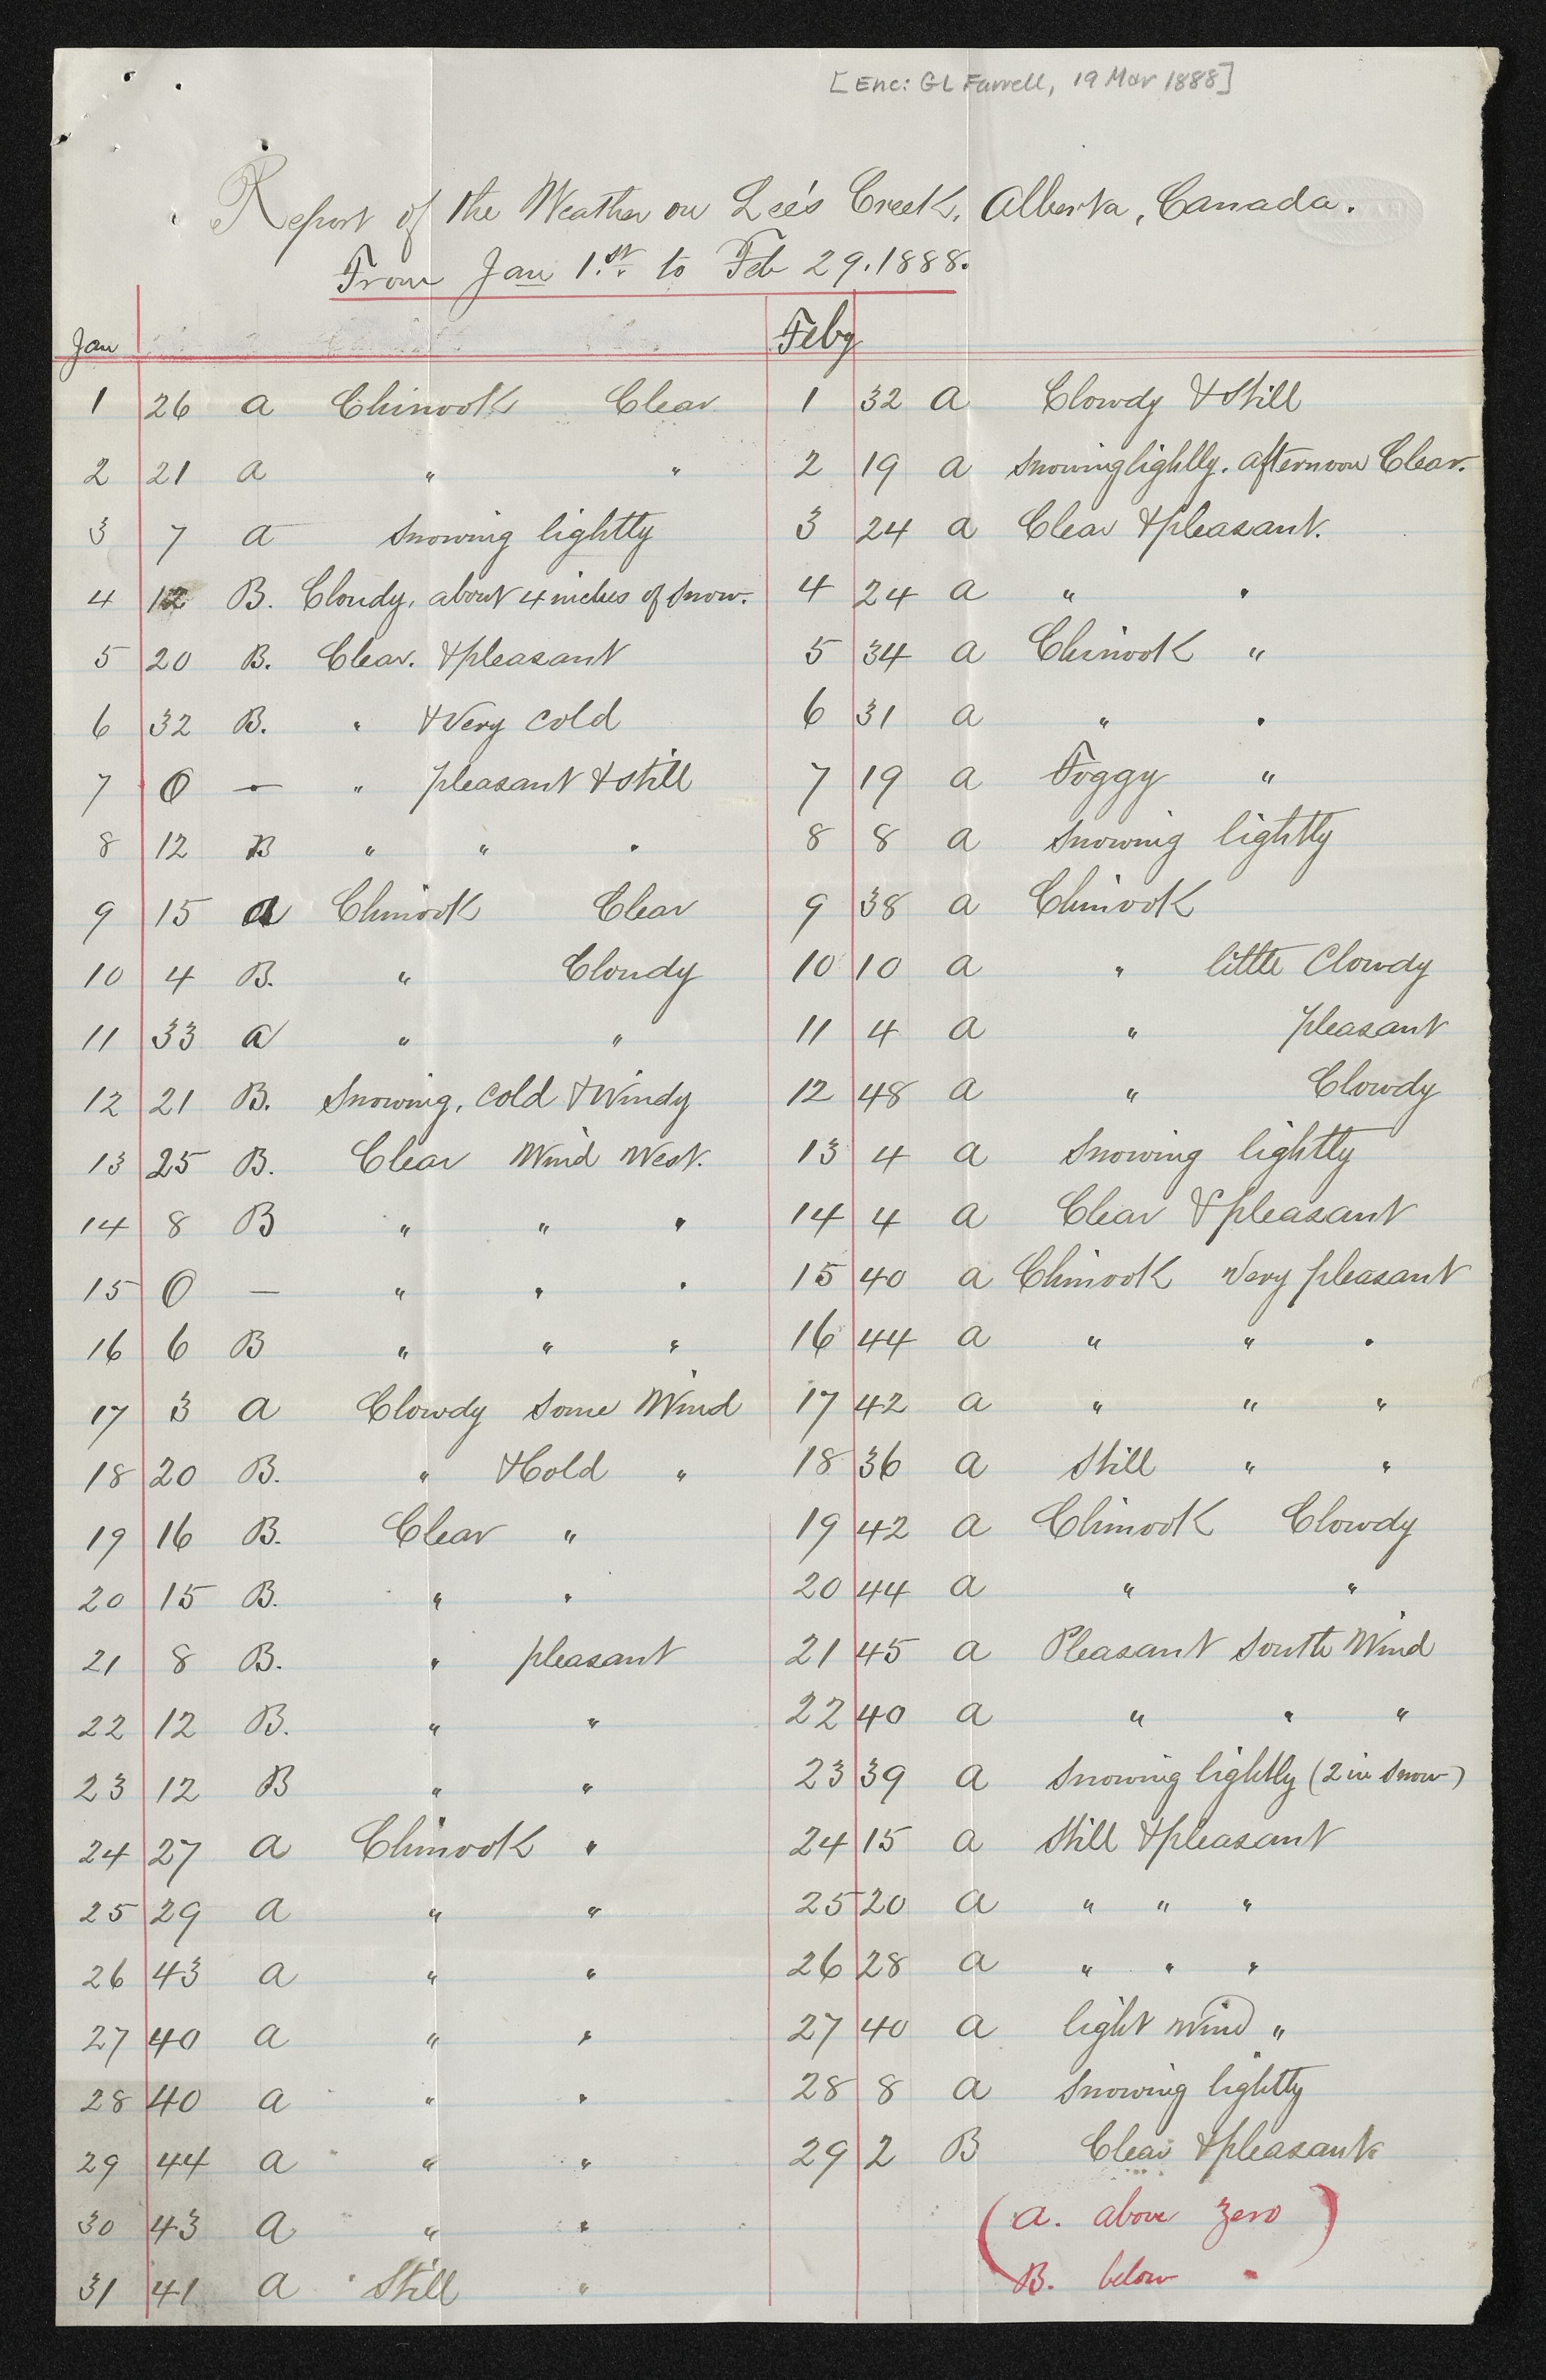 [Enc: GL Farrell, 19 Mar 1888]
Report of the Weather on Lee's Creek, Alberta, Canada.
From Jan 1.st to Feb 29. 1888.
Jan
1 26 a Chinook Clear
2 21 a " "
3 7 a Snowing lightly
4 12 B. Cloudy, about 4 inches of snow.
5 20 B. Clear. & pleasant
6 32 B. " & Very cold
7 0 — " pleasant & still
8 12 B " " "
9 15 a Chinook Clear
10 4 B. " Cloudy
11 33 a " "
12 21 B. Snowing, cold & Windy
13 25 B. Clear Wind West.
14 8 B " " "
15 0 — " " "
16 6 B " " "
17 3 a Clowdy some Wind
18 20 B. " & Cold "
19 16 B. Clear "
20 15 B. " "
21 8 B. " pleasant
22 12 B. " "
23 12 B " "
24 27 a Chinook "
25 29 a " "
26 43 a " "
27 40 a " "
28 40 a " "
29 44 a " "
30 43 a " "
31 41 a Still "
Feby
1 32 a Clowdy & still
2 19 a snowing lightly. afternoon Clear.
3 24 a Clear & pleasant.
4 24 a " "
5 34 a Chinook "
6 31 a " "
7 19 a Foggy "
8 8 a snowing lightly
9 38 a Chinook
10 10 a " little Clowdy
11 4 a " pleasant
12 48 a " Clowdy
13 4 a Snowing lightly
14 4 a Clear & pleasant
15 40 a Chinook Very pleasant
16 44 a " " "
17 42 a " " "
18 36 a Still " "
19 42 a Chinook Clowdy
20 44 a " "
21 45 a Pleasant South Wind
22 40 a " " "
23 39 a Snowing lightly (2 in snow)
24 15 a Still & pleasant
25 20 a " " "
26 28 a " " "
27 40 a light wind "
28 8 a Snowing lightly
29 2 B Clear & pleasant
(a. above zero)
B. below "